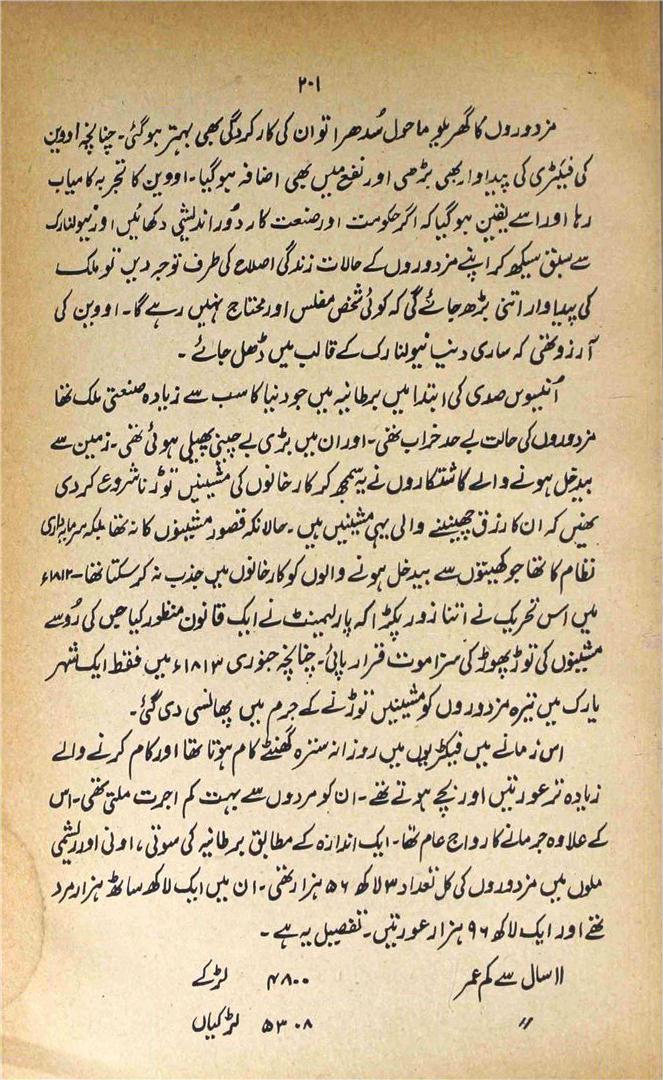 ۲۰۱
مزدوروں کا گھریلو ماحول سُدھرا تو ان کی کارکردگی بھی بہتر ہوگئی۔ چنانچہ اووین
کی فیکٹری کی پیداوار بھی بڑھی اور نفع میں بھی اضافہ ہوگیا۔ اووین کا تجربہ کامیاب
رہا اور اسے یقین ہوگیا کہ اگر حکومت اور صنعت کار دُور اندیشی دکھائیں اور نیولنارک
سے سبق سیکھ کر اپنے مزدوروں کے حالات زندگی اصلاح کی طرف توجہ دیں تو ملک
کی پیداوار اتنی بڑھ جائے گی کہ کوئی شخص مفلس اور محتاج نہیں رہے گا۔ اووین کی
آرزو تھی کہ ساری دنیا نیولنارک کے قالب میں ڈھل جائے ۔
اُنیسویں صدی کی ابتدا میں برطانیہ میں جو دنیا کا سب سے زیادہ صنعتی ملک تھا
مزدوروں کی حالت بے حد خراب تھی۔ اور ان میں بڑی بے چینی پھیلی ہوئی تھی۔ زمین سے
بیدخل ہونے والے کاشتکاروں نے یہ سمجھ کر کارخانوں کی مشینیں توڑنا شروع کردی
تھیں کہ ان کا رزق چھیننے والی یہی مشینیں ہیں۔ حالانکہ قصور مشینوں کا نہ تھا بلکہ سرمایہ داری
نظام کا تھا جو کھیتوں سے بیدخل ہونے والوں کو کارخانوں میں جذب نہ کرسکتا تھا۔ ۱۸۱۲ء
میں اس تحریک نے اتنا زور پکڑا کہ پارلیمنٹ نے ایک قانون منظور کیا جس کی رُو سے
مشینوں کی توڑ پھوڑ کی سزا موت قرار پائی۔ چنانچہ جنوری ۱۸۱۳ء میں فقط ایک شہر
یارک میں تیرہ مزدوروں کو مشینیں توڑنے کے جرم میں پھانسی دی گئی۔
اس زمانے میں فیکٹریوں میں روزانہ سترہ گھنٹے کام ہوتا تھا اور کام کرنے والے
زیادہ تر عورتیں اور بچے ہوتے تھے۔ ان کو مردوں سے بہت کم اجرت ملتی تھی۔ اس
کے علاوہ جرمانے کا رواج عام تھا۔ ایک اندازہ کے مطابق برطانیہ کی سوتی، اونی اور ریشمی
ملوں میں مزدوروں کی کل تعداد ۳ لاکھ ۵۶ ہزار تھی۔ ان میں ایک لاکھ ساٹھ ہزار مرد
تھے اور ایک لاکھ ۹۶ ہزار عورتیں۔ تفصیل یہ ہے ۔
۱۱ سال سے کم عمر ۴۸۰۰ لڑکے
〃 ۵۳۰۸ لڑکیاں